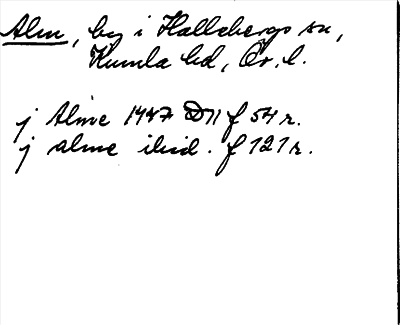 Alm, by i Hallsbergs sn,
Kumla hd, Ör. l.
j Alme 1447 D11 f 54 r.
j alme ibid. f 121 r.